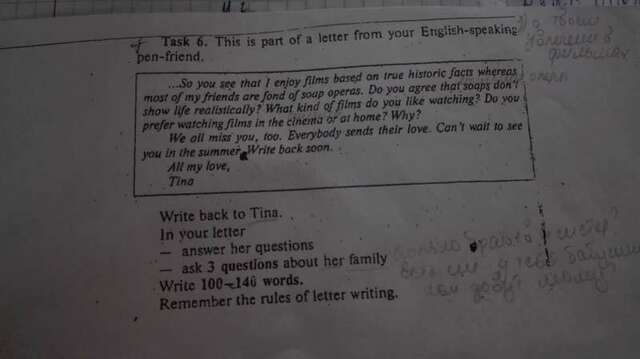 Task 6. This is part of a letter from your English-speaking
pen-friend.
...So you see that I enjoy films based on true historic facts whereas
most of my friends are fond of soap operas. Do you agree that soaps don't
show life realistically? What kind of films do you like watching? Do you
prefer watching films in the cinema or at home? Why?
We all miss you, too. Everybody sends their love. Can't wait to see
you in the summer. Write back soon.
All my love,
Tina
Write back to Tina.
In your letter
— answer her questions
— ask 3 questions about her family
Write 100–140 words.
Remember the rules of letter writing.